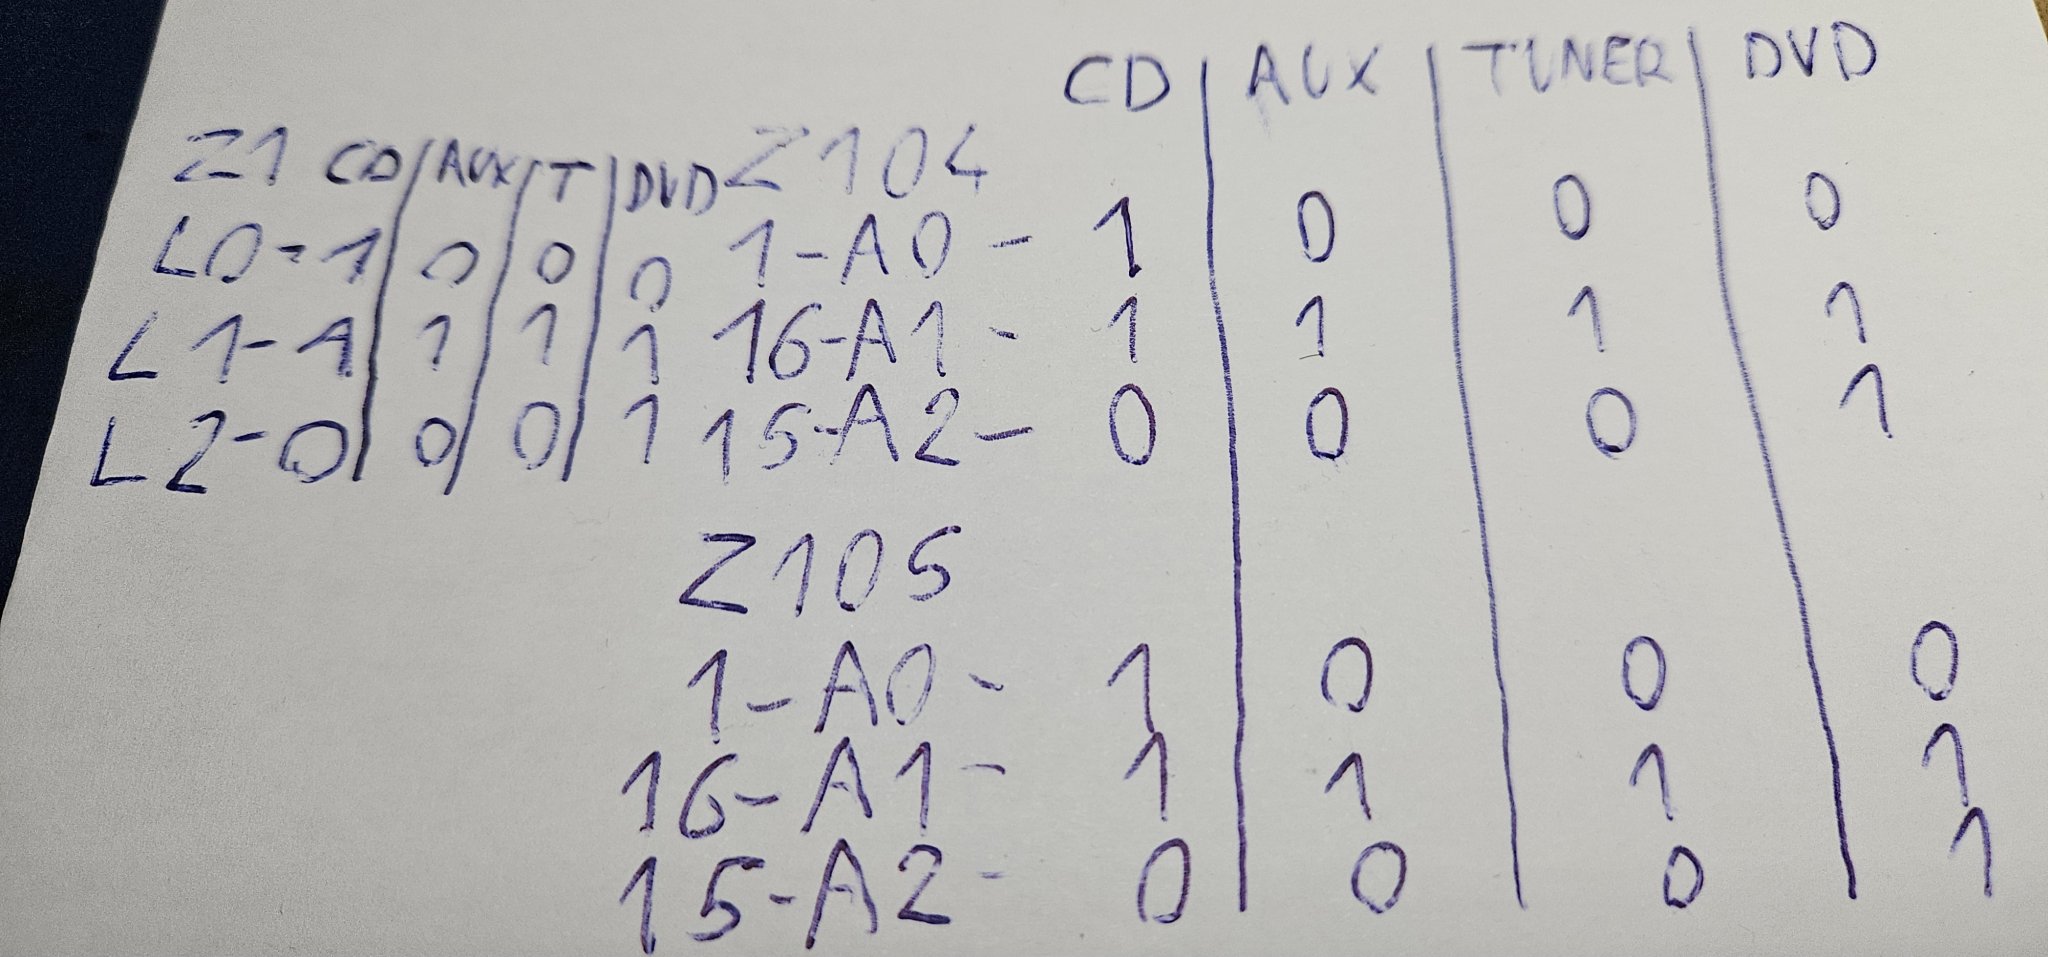 CD | AUX | TUNER | DVD
Z1 CD | AUX | T | DVD
L0-1 | 0 | 0 | 0
L1-1 | 1 | 1 | 1
L2-0 | 0 | 0 | 1
Z104
1-A0- 1 | 0 | 0 | 0
16-A1- 1 | 1 | 1 | 1
15-A2- 0 | 0 | 0 | 1
Z105
1-A0- 1 | 0 | 0 | 0
16-A1- 1 | 1 | 1 | 1
15-A2- 0 | 0 | 0 | 1